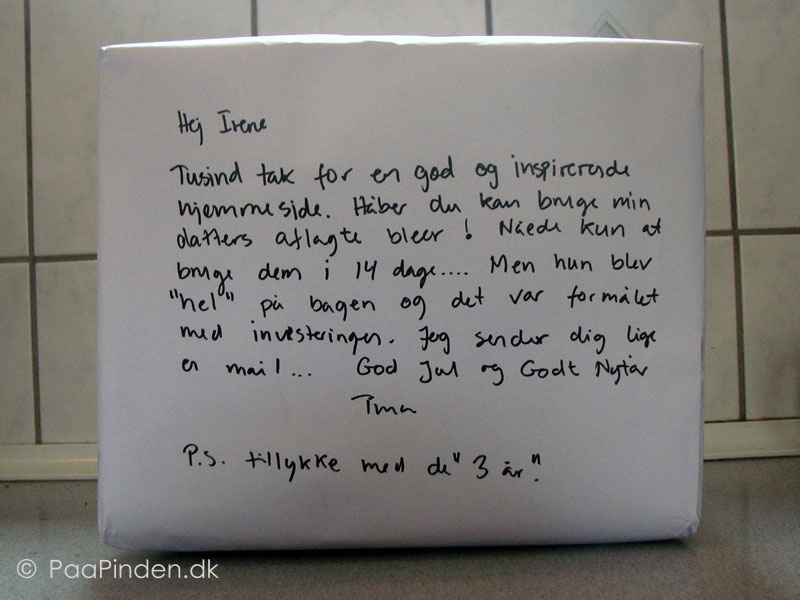 Hej Irene
Tusind tak for en god og inspirerende
hjemmeside. Håber du kan bruge min
datters aflagte bleer! Nåede kun at
bruge dem i 14 dage.... Men hun blev
"hel" på bagen og det var formålet
med investeringen. Jeg sender dig lige
en mail... God Jul og Godt Nytår
P.S. tillykke med de "3 år".
© PaaPinden.dk